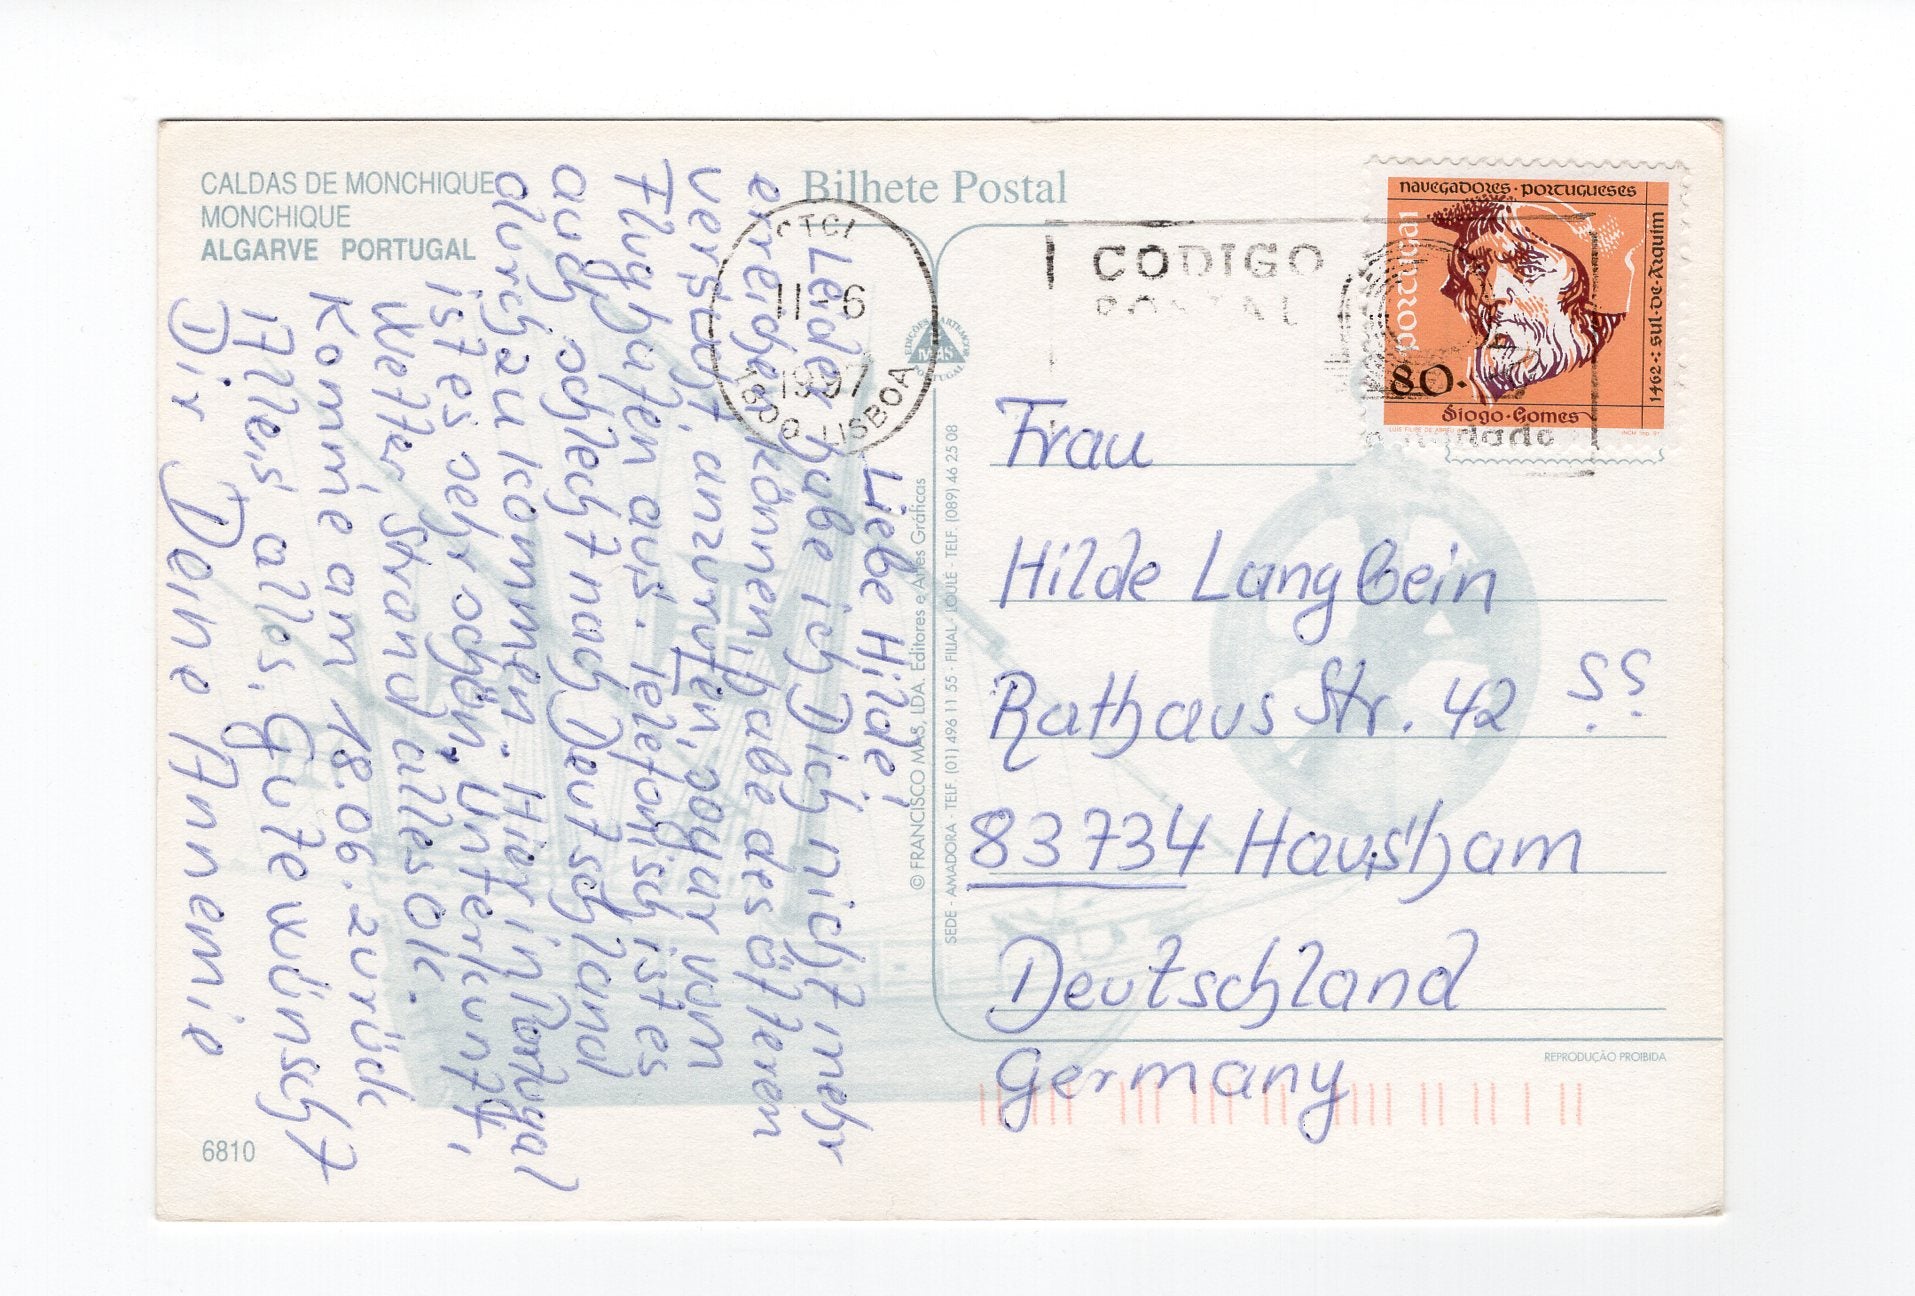 CALDAS DE MONCHIQUE
MONCHIQUE
ALGARVE PORTUGAL
Bilhete Postal
Liebe Hilde!
Leider habe ich Dich nicht mehr
erreichen können, habe des öfteren
versucht, anzurufen, sogar vom
Flughafen aus. Telefonisch ist es
auch schlecht nach Deutschland
durchzukommen. Hier in Portugal
ist es sehr schön, Unterkunft,
Wetter, Strand alles ok.
Komme am 18.06. zurück
Alles, alles Gute wünscht
Dir Deine Annemie
6810
CTCI
11-6
1997
1800 LISBOA
CODIGO
POSTAL
navegadores · portugueses
portugal
80.
Diogo · Gomes
1462 : sul · de · Arguim
MAS
© FRANCISCO MAS, LDA. Editores e Artes Gráficas
SEDE - AMADORA - TELF. (01) 496 11 55 - FILIAL - LOULÉ - TELF. (089) 46 25 08
Frau
Hilde Langbein
Rathaus Str. 42
83734 Hausham
Deutschland
Germany
REPRODUÇÃO PROIBIDA